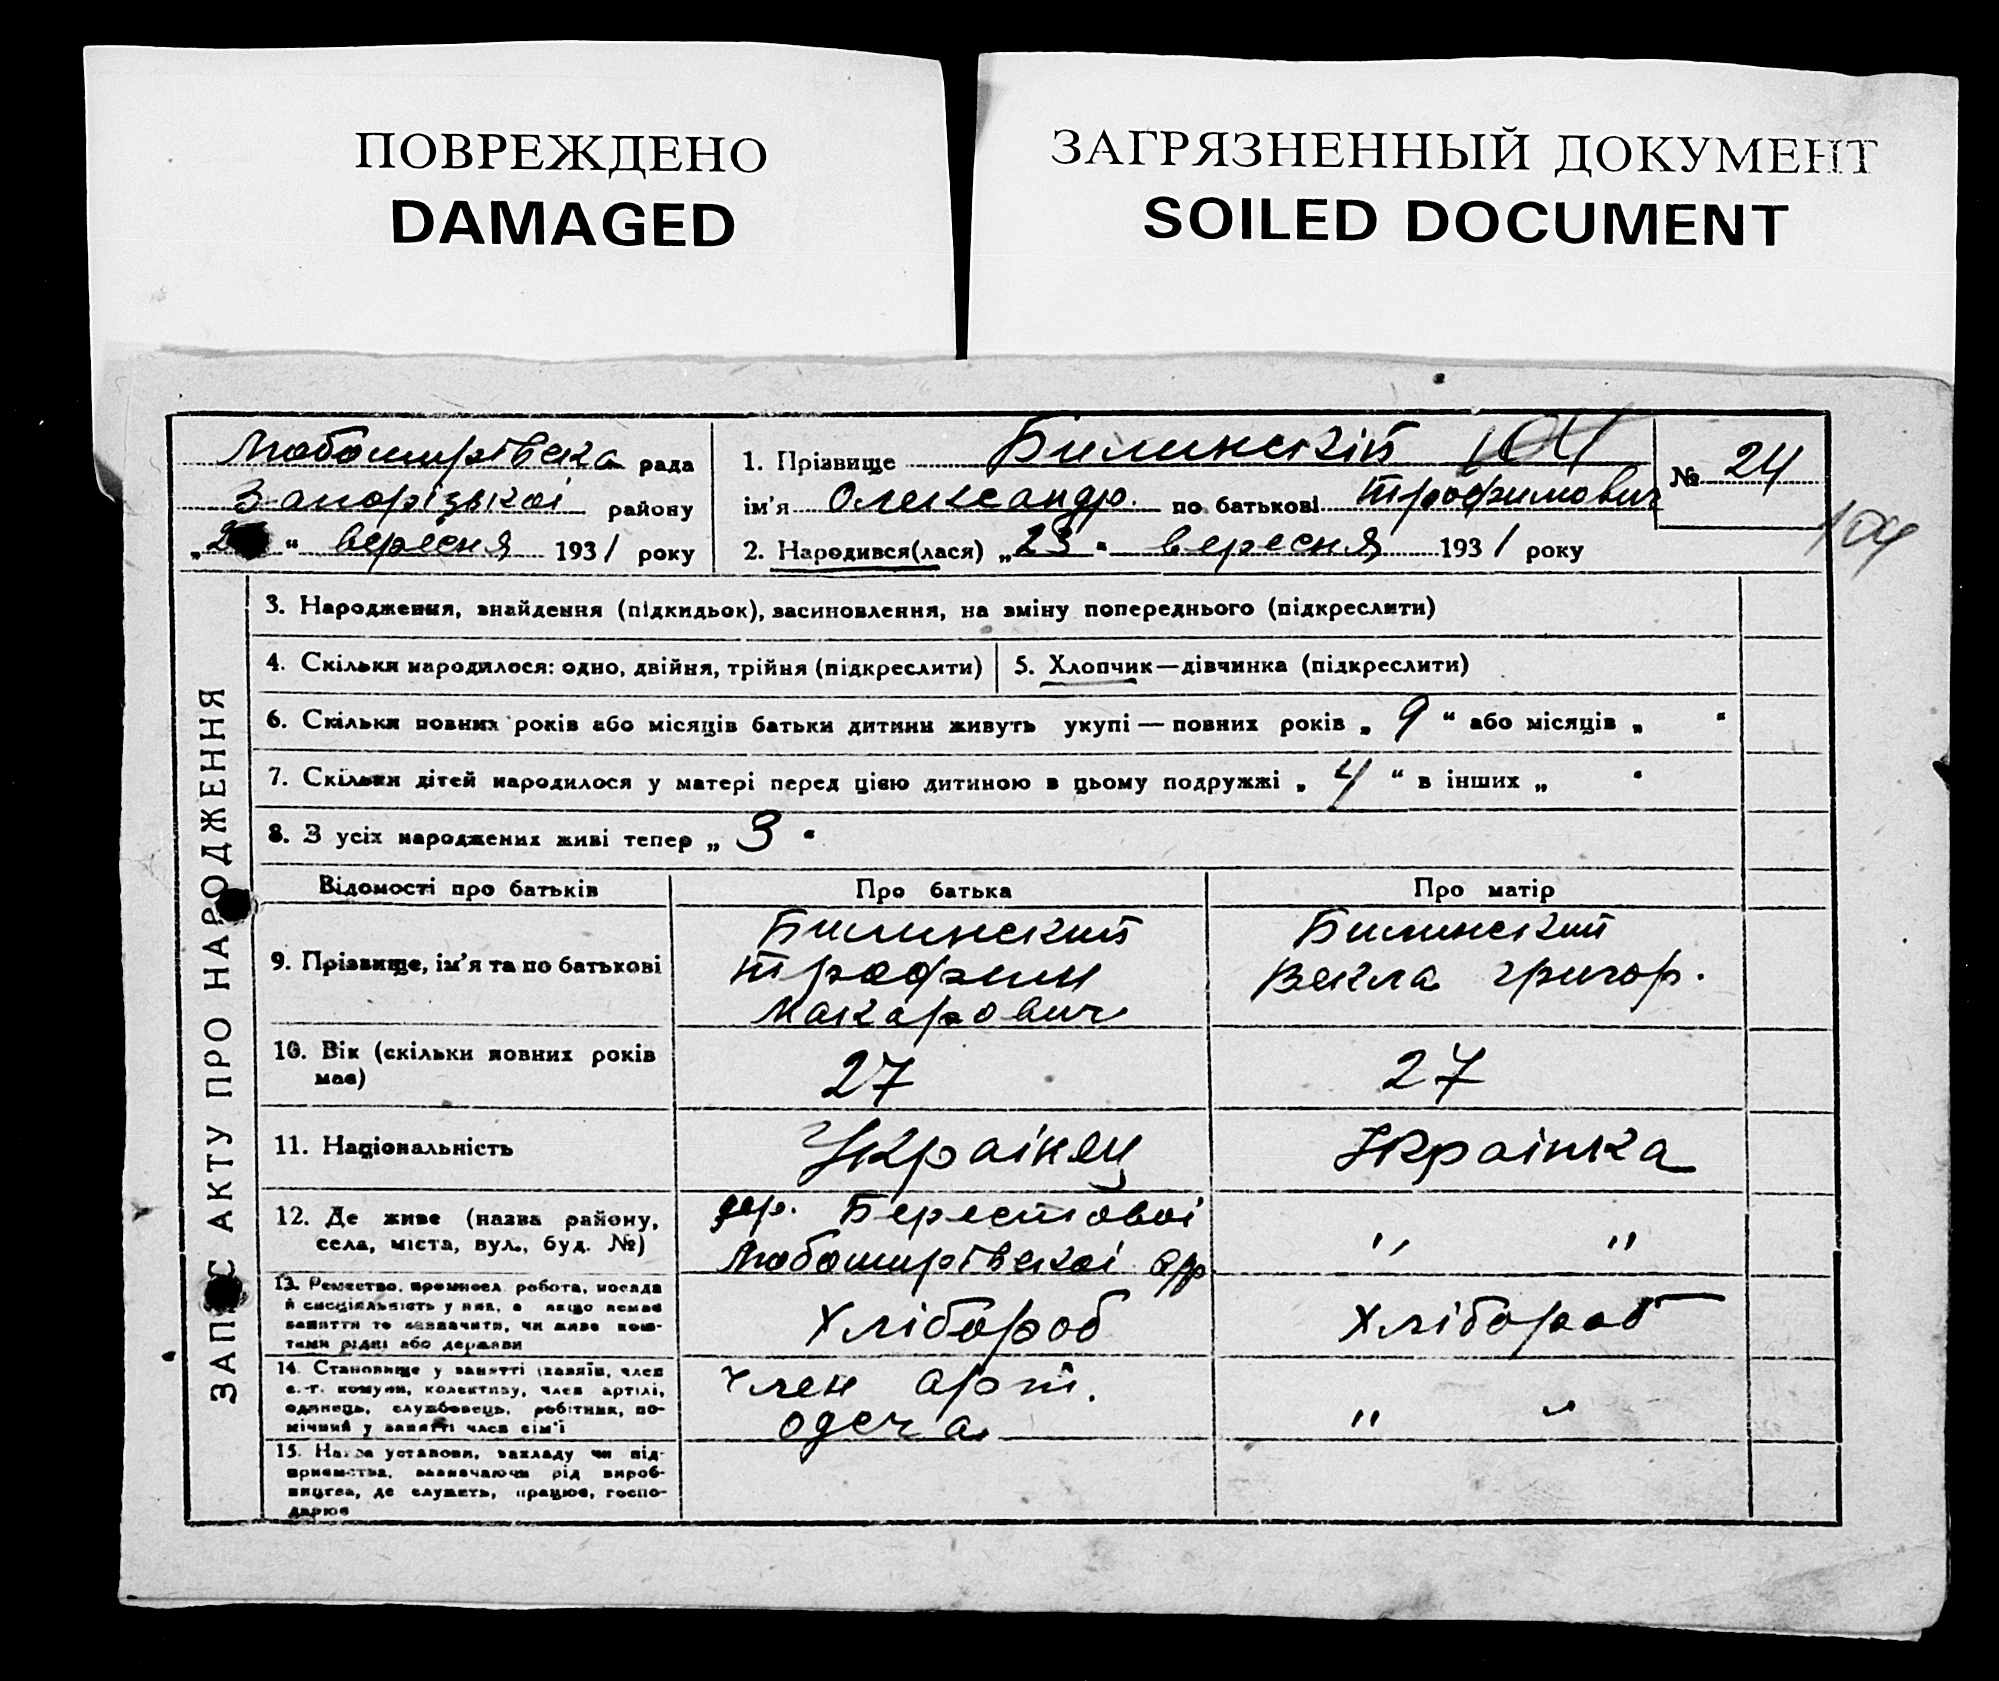 ПОВРЕЖДЕНО
DAMAGED
ЗАГРЯЗНЕННЫЙ ДОКУМЕНТ
SOILED DOCUMENT
Любомирівска рада
Запорізькоі району
„2 “ вересня 1931 року
1. Прізвище Билинскій 104
ім'я Олександр. по батькові Трофимович
2. Народився(лася) „23“ вересня 1931 року
№ 24
104
ЗАПИС АКТУ ПРО НАРОДЖЕННЯ
3. Народження, знайдення (підкидьок), засиновлення, на зміну попереднього (підкреслити)
4. Скільки народилося: одно, двійня, трійня (підкреслити)
5. Хлопчик—дівчинка (підкреслити)
6. Скільки повних років або місяців батьки дитини живуть укупі — повних років „ 9 “ або місяців „ “
7. Скільки дітей народилося у матері перед цією дитиною в цьому подружжі „ 4 “ в інших „ “
8. З усіх народжених живі тепер „ 3 “
Відомості про батьків Про батька Про матір
9. Прізвище, ім'я та по батькові
Билинский
Трофим
Макарович
Билинский
Векла Григор.
10. Вік (скільки повних років
має)
27
27
11. Національність
Украінец
Украінка
12. Де живе (назва району,
села, міста, вул., буд. №)
дер. Берестовоі
Любомирівскоі с/р
" "
13. Ремество, промисел, робота, посада
й спеціяльність у них, а якщо немає
заняття то зазначити, чи живе кош-
тами рідні або держави
Хлібороб
Хлібороб
14. Становище у занятті (хазяїн, член
с.-г. комуни, колективу, член артілі,
одинець, службовець, робітник, по-
мічний у занятті член сім'ї
Член арт.
" "
15. Назва установи, закладу чи під-
приємства, зазначаючи рід вироб-
ництва, де служить, працює, госпо-
дарює